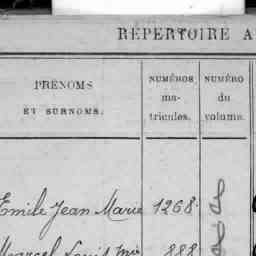 RÉPERTOIRE A
PRÉNOMS
ET SURNOMS.
NUMÉROS
ma-
tricules.
NUMÉRO
du
volume.
Emile Jean Marie 1268
Marcel Louis 888